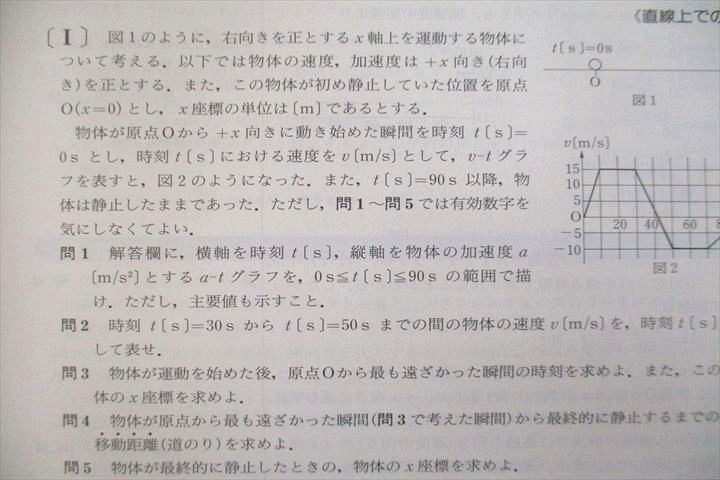 《直線上での
〔Ⅰ〕 図1のように，右向きを正とする x 軸上を運動する物体に
ついて考える．以下では物体の速度，加速度は＋x 向き(右向
き)を正とする．また，この物体が初め静止していた位置を原点
O(x=0) とし，x 座標の単位は〔m〕であるとする．
物体が原点Oから ＋x 向きに動き始めた瞬間を時刻 t〔s〕=
0s とし，時刻 t〔s〕における速度を v〔m/s〕として，v-t グラ
フを表すと，図2のようになった．また，t〔s〕=90s 以降，物
体は静止したままであった．ただし，問1～問5では有効数字を
気にしなくてよい．
t〔s〕=0s
O
図1
v〔m/s〕
15
10
5
O
-5
-10
20 40 60 8
図2
問1 解答欄に，横軸を時刻 t〔s〕，縦軸を物体の加速度 a
〔m/s²〕とする a-t グラフを，0s≦t〔s〕≦90s の範囲で描
け．ただし，主要値も示すこと．
問2 時刻 t〔s〕=30s から t〔s〕=50s までの間の物体の速度 v〔m/s〕を，時刻 t〔s〕
して表せ．
問3 物体が運動を始めた後，原点Oから最も遠ざかった瞬間の時刻を求めよ．また，この
体の x 座標を求めよ．
問4 物体が原点から最も遠ざかった瞬間(問3で考えた瞬間)から最終的に静止するまでの
移動距離(道のり)を求めよ．
問5 物体が最終的に静止したときの，物体の x 座標を求めよ．